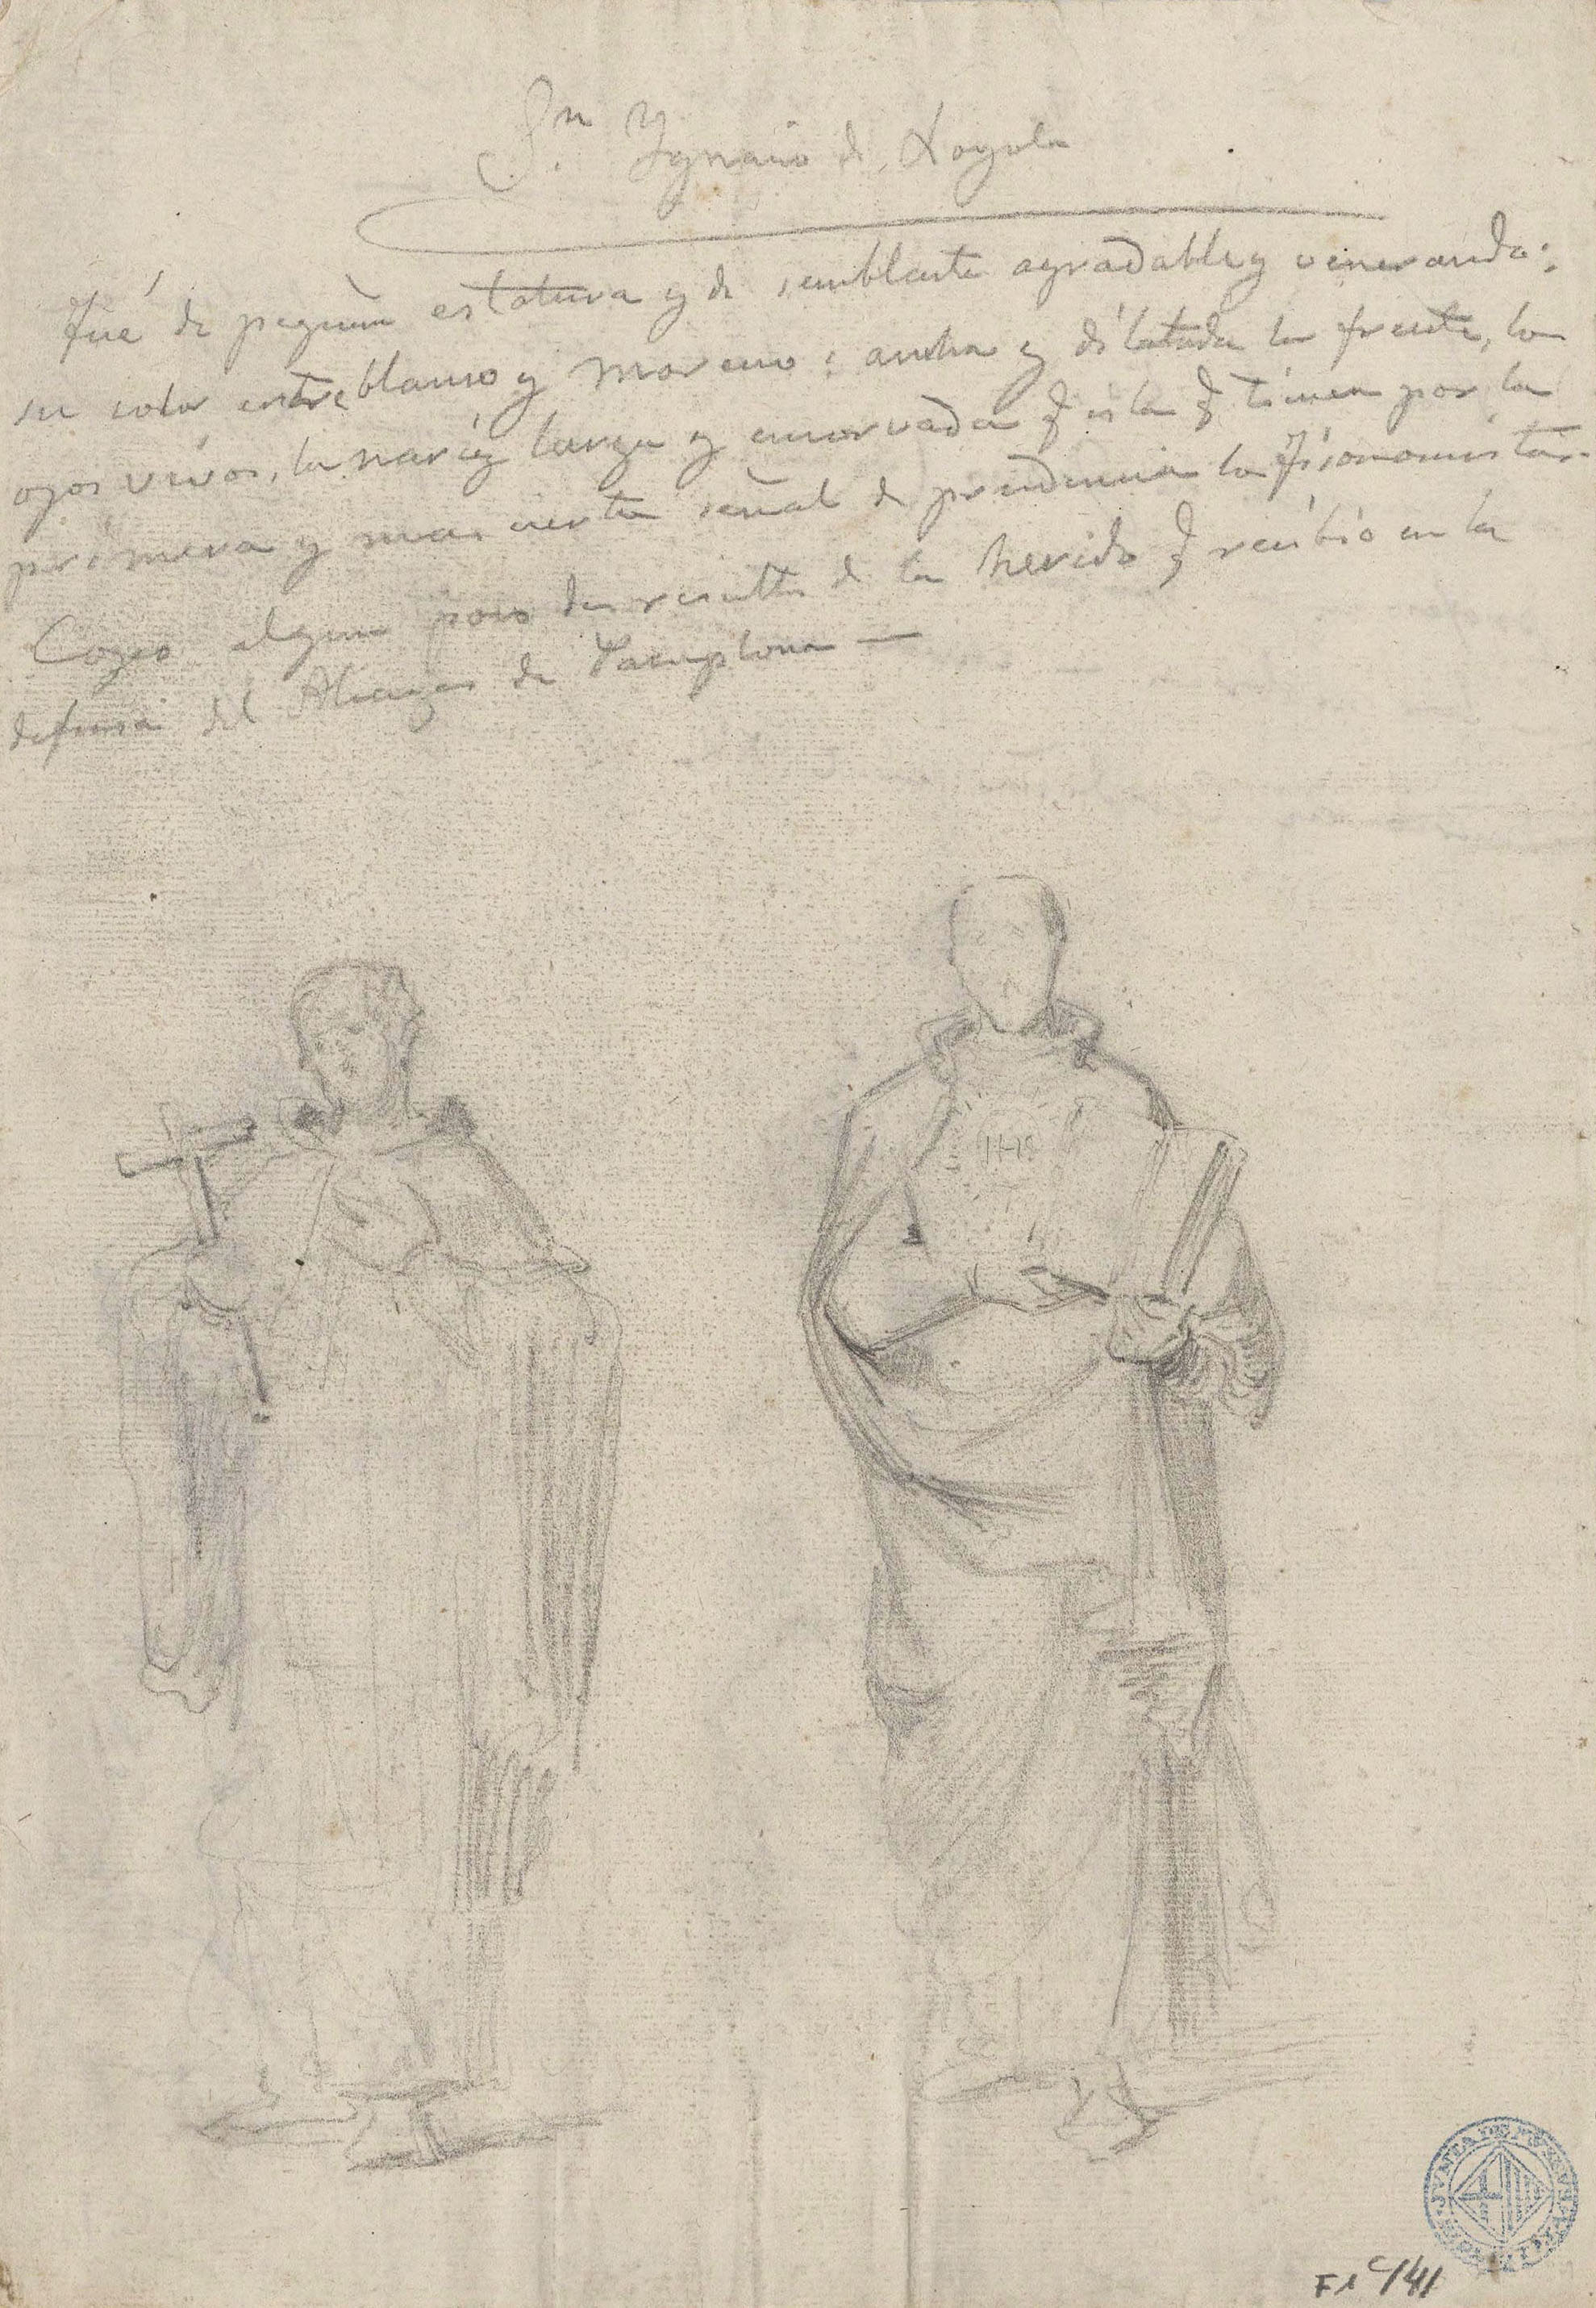 Sn. Ygnacio de Loyola
Fué de pequeña estatura y de semblante agradable y venerando:
su color entre blanco y moreno: ancha y dilatada la frente, los
ojos vivos, la nariz larga y encorvada q es la q tienen por la
primera y mas cierta señal de prudencia los fisonomistas.
Cogeo algun poco de resultas de la herida q recibió en la
defensa del Alcazar de Pamplona —
IHS
JUNTA DE MUSEUS
F1 C/41